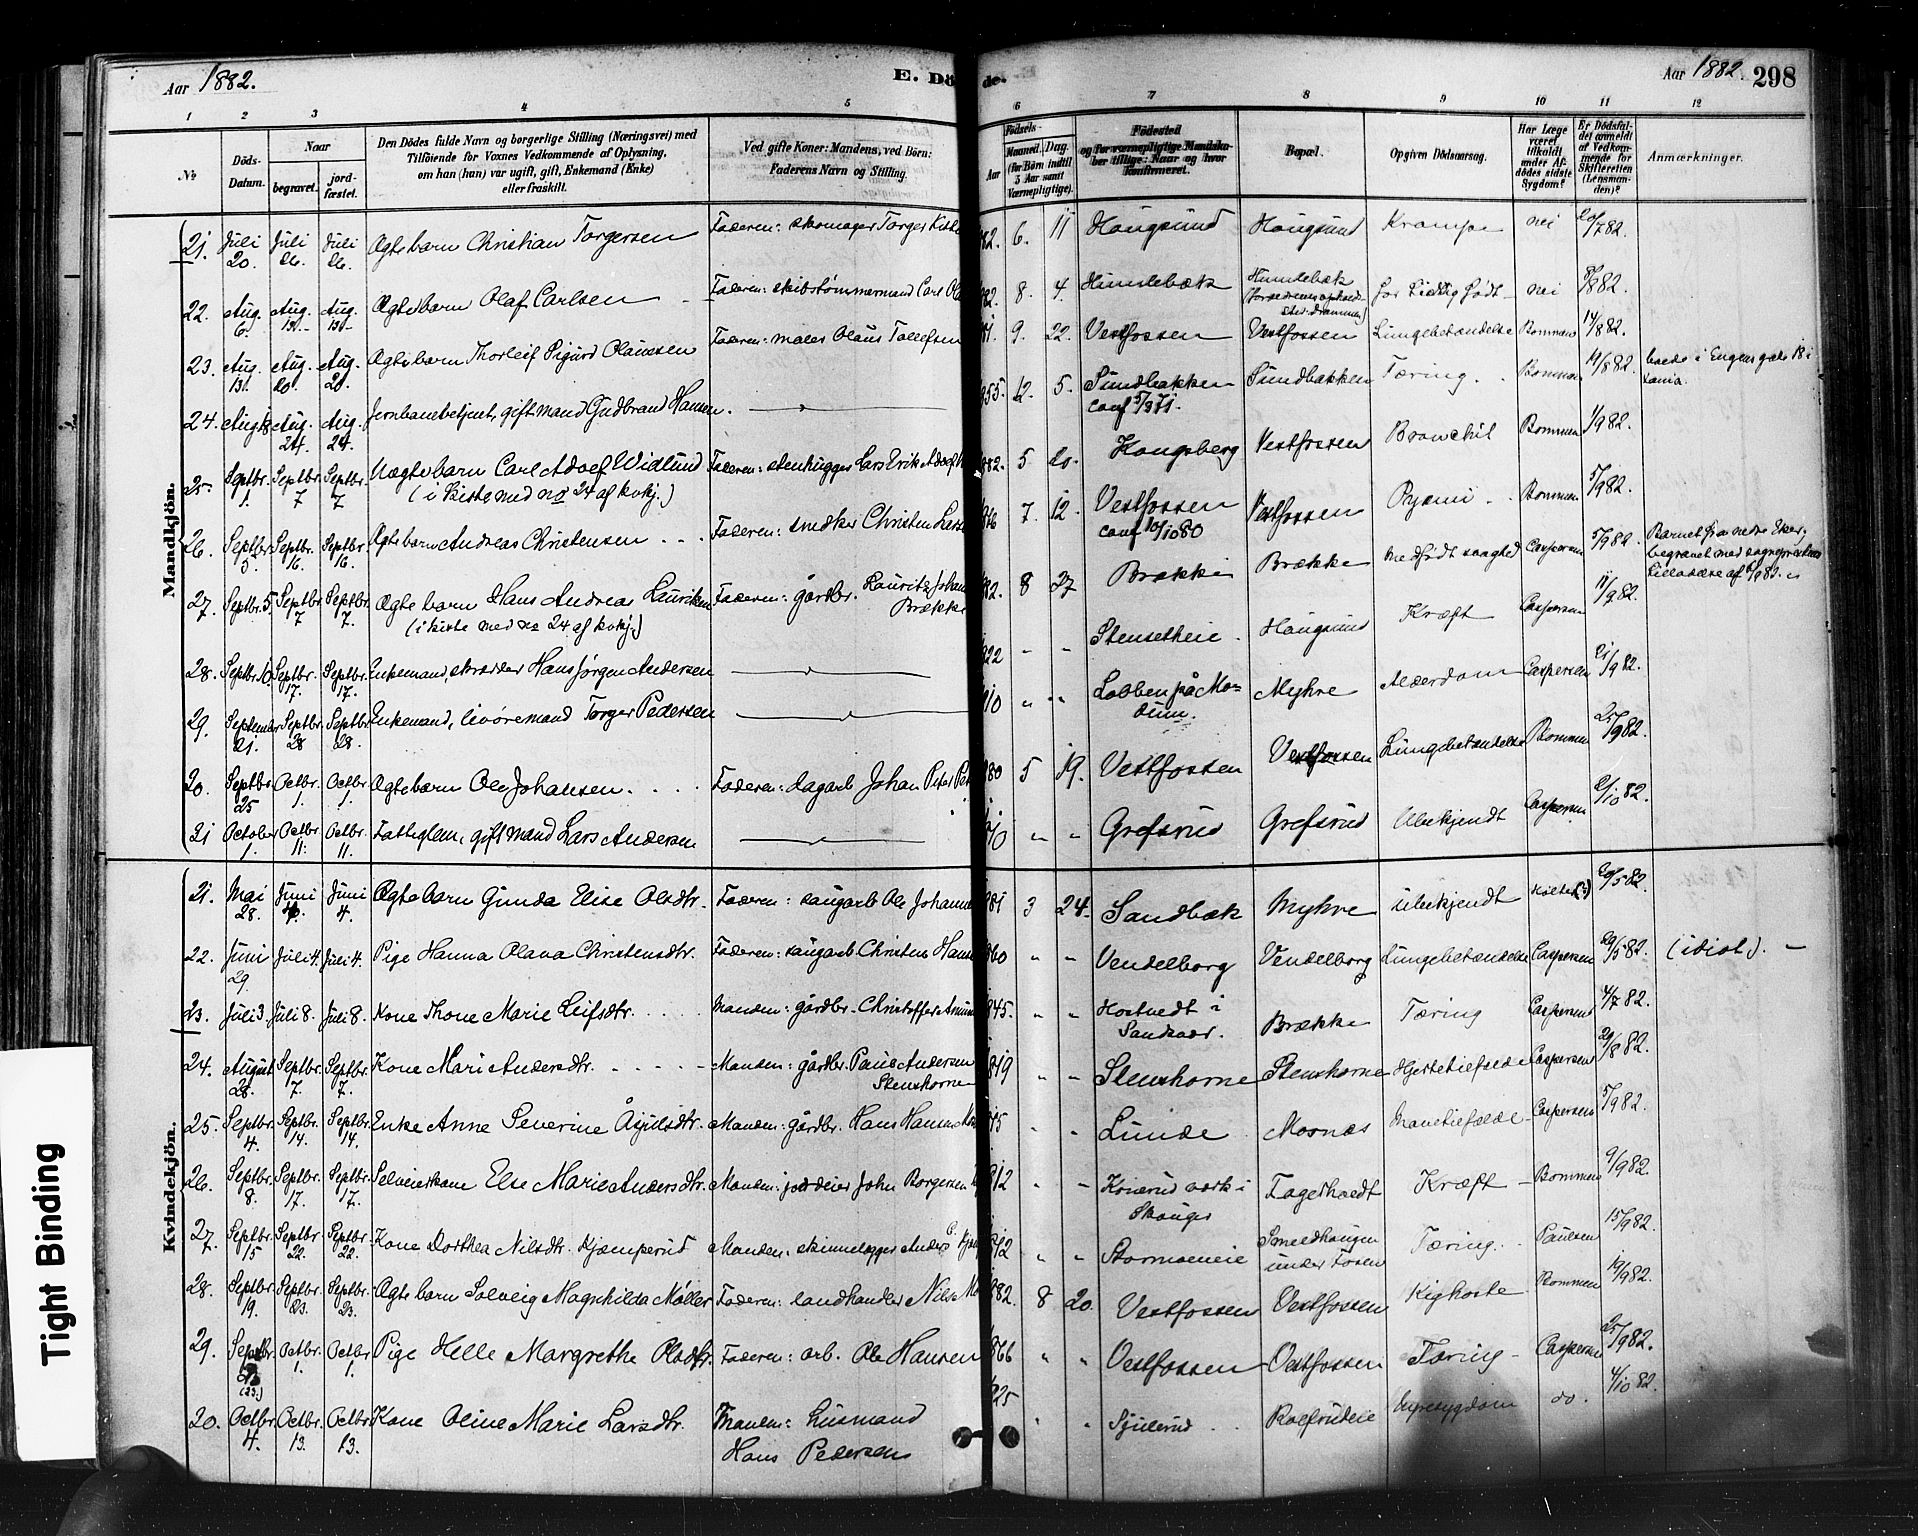 Aar 1882. E. Dö
de. Aar 1882. 298
1 2 3 4 5 6 7 8 9 10 11 12
No Döds-Datum. Naar begravet. jordfæstet. Den Dödes fulde Navn og borgerlige Stilling (Næringsvei) med Tilföiende for Voxnes Vedkommende af Oplysning, om han (hun) var ugift, gift, Enkemand (Enke) eller fraskilt. Ved gifte Koner: Mandens, ved Börn: Faderens Navn og Stilling.
Födsels- Aar Maaned. Dag. (for Börn indtil 5 Aar samt Værnepligtige). Födested og for værnepligtige Mandskaber tillige: Naar og hvor Konfirmeret. Bopæl. Opgiven Dödsaarsag. Har Læge været tilkaldt under Afdödes sidste Sygdom? Er Dödsfaldet anmeldt af Vedkommende for Skifteretten (Lensmanden)? Anmærkninger.
Mandkjön.
21. Juli 20. Juli 26. Juli 26. Ægtebarn Christian Torgersen Faderen: skomager Torger 82. 6. 11 Hougsund Hougsund Krampe nei 20/7 82.
22. Aug. 6. Aug. 13. Aug. 13. Ægtebarn Olaf Carlsen Faderen: skibstømmermand Carl 82. 8. 4. Humlebæk Humlebæk for tidlig født nei 8/8 82.
23. Aug. 13. Aug. 20. Aug. 20. Ægtebarn Thorleif Sigurd Olaussen Faderen: maler Olaus Tollefsen 9. 22. Vestfossen Vestfossen Lungebetændelse Bommen 14/8 82.
24. Aug. 18 Aug. 24. Aug. 24. Jernbanebetjent, gift mand Gudbrand Hansen. 55. 12. 5. Sundbakken Sundbakken Tæring. Bommen 19/8 82. boede i Engens gade 18 i
conf
25. Septbr. 1. Septbr. 7 Septbr. 7 Uægtebarn Carl Adolf Widlund Faderen: stenhugger Lars Erik Adolf 82. 5 20. Kongsberg Vestfossen Bronchit Bommen 1/9 82.
(i kiste med no 24 af kvkj.)
26. Septbr. 5. Septbr. 16. Septbr. 16. Ægtebarn Andreas Christensen Faderen: snedker Christen 7. 12. Vestfossen Vestfossen Pyæmi Bommen 5/9 82.
conf 10/10 80
27. Septbr. 5 Septbr. 7 Septbr. 7. Ægtebarn Hans Andreas Lauritzen Faderen: gårdbr. Lauritz Johan 82. 8 27 Brække Brække medfødt svaghed Caspersen 5/9 82. Barnet fra nedre Eker,
(i kiste med no 24 af kvkj.) Brække
28. Septbr. 10. Septbr. 17. Septbr. 17. Enkemand, skrædder Hans Jørgen Andersen 22 Stensetheie Hougsund Kræft Caspersen 11/9 82.
29. September 21. Septbr. 28 Septbr. 28. Enkemand, livøremand Torger Pedersen 10 Lobben på Modum. Myhre Alderdom Caspersen 21/9 82.
30. Septbr. 25 Octbr. 1. Octbr. 1. Ægtebarn Ole Johansen Faderen: dagarb Johan Peter 80 5 19. Vestfossen Vestfossen Lungebetændelse Bommen 25/9 82.
31 October 1. Octbr. 11. Octbr. 11. Fattiglem, gift mand Lars Andersen Grefsrud Grefsrud Ubekjendt Caspersen 2/10 82.
Kvindekjön.
21. Mai 28. Juni 4. Juni 4. Ægtebarn Gunda Elise Olsdtr. Faderen: saugarb Ole 881 3 24. Sandbæk Myhre Ubekjendt 29/5 82.
22. Juni 29. Juli 4. Juli 4. Pige Hanna Olava Christensdtr. Faderen: saugarb Christen 860 Vendelborg Vendelborg Lungebetændelse Caspersen 29/5 82. (idiot).
23. Juli 3. Juli 8. Juli 8. Kone Thone Marie Leifsdtr. Manden: gårdbr. Christoffer 845. Hostvedt i Sandsvær. Brække Tæring Caspersen 4/7 82.
24. August 28. Septbr. 7. Septbr. 7. Kone Mari Andersdtr. Manden: gårdbr. Paul Andersen Stenshorne 19 Stenshorne Stenshorne Hjertetilfælde Caspersen 29/8 82.
25. Septbr. 4. Septbr. 14. Septbr. 14. Enke Anne Severine Manden: gårdbr. Hans Hansen 45 Lunde Mosnæs Mavetilfælde Caspersen 5/9 82.
26. Septbr. 8. Septbr. 17. Septbr. 17. Selveierkone Else Marie Andersdtr. Manden: jordeier John Borgersen 812 Skouger Fagerhoedt Kræft Bommen 9/9 82.
27. Septbr. 15 Septbr. 22. Septbr. 22. Kone Dorthea Nilsdtr. Kjæmperud Manden: skinnelægger Anders 812 Stormoeneie Smedhougen under Fosen Tæring. Paulsen 15/9 82.
28. Septbr. 19. Septbr. 23. Septbr. 23. Ægtebarn Solveig Magnhilda Møller Faderen: landhandler Nils 82. 8 20. Vestfossen Vestfossen Kighoste Bommen 19/9 82.
29. Septbr. (23.) Octbr. 1. Octbr. 1. Pige Helle Margrethe Olsdtr. Faderen: arb. Ole Hansen 866 Vestfossen Vestfossen Tæring Caspersen 25/9 82.
30. Octbr. 4. Octbr. 13. Octbr. 13. Kone Oline Marie Larsdtr. Manden: husmand Hans Pedersen 25 Sjulerud Nyresygdom do. 4/10 82.
Tight Binding